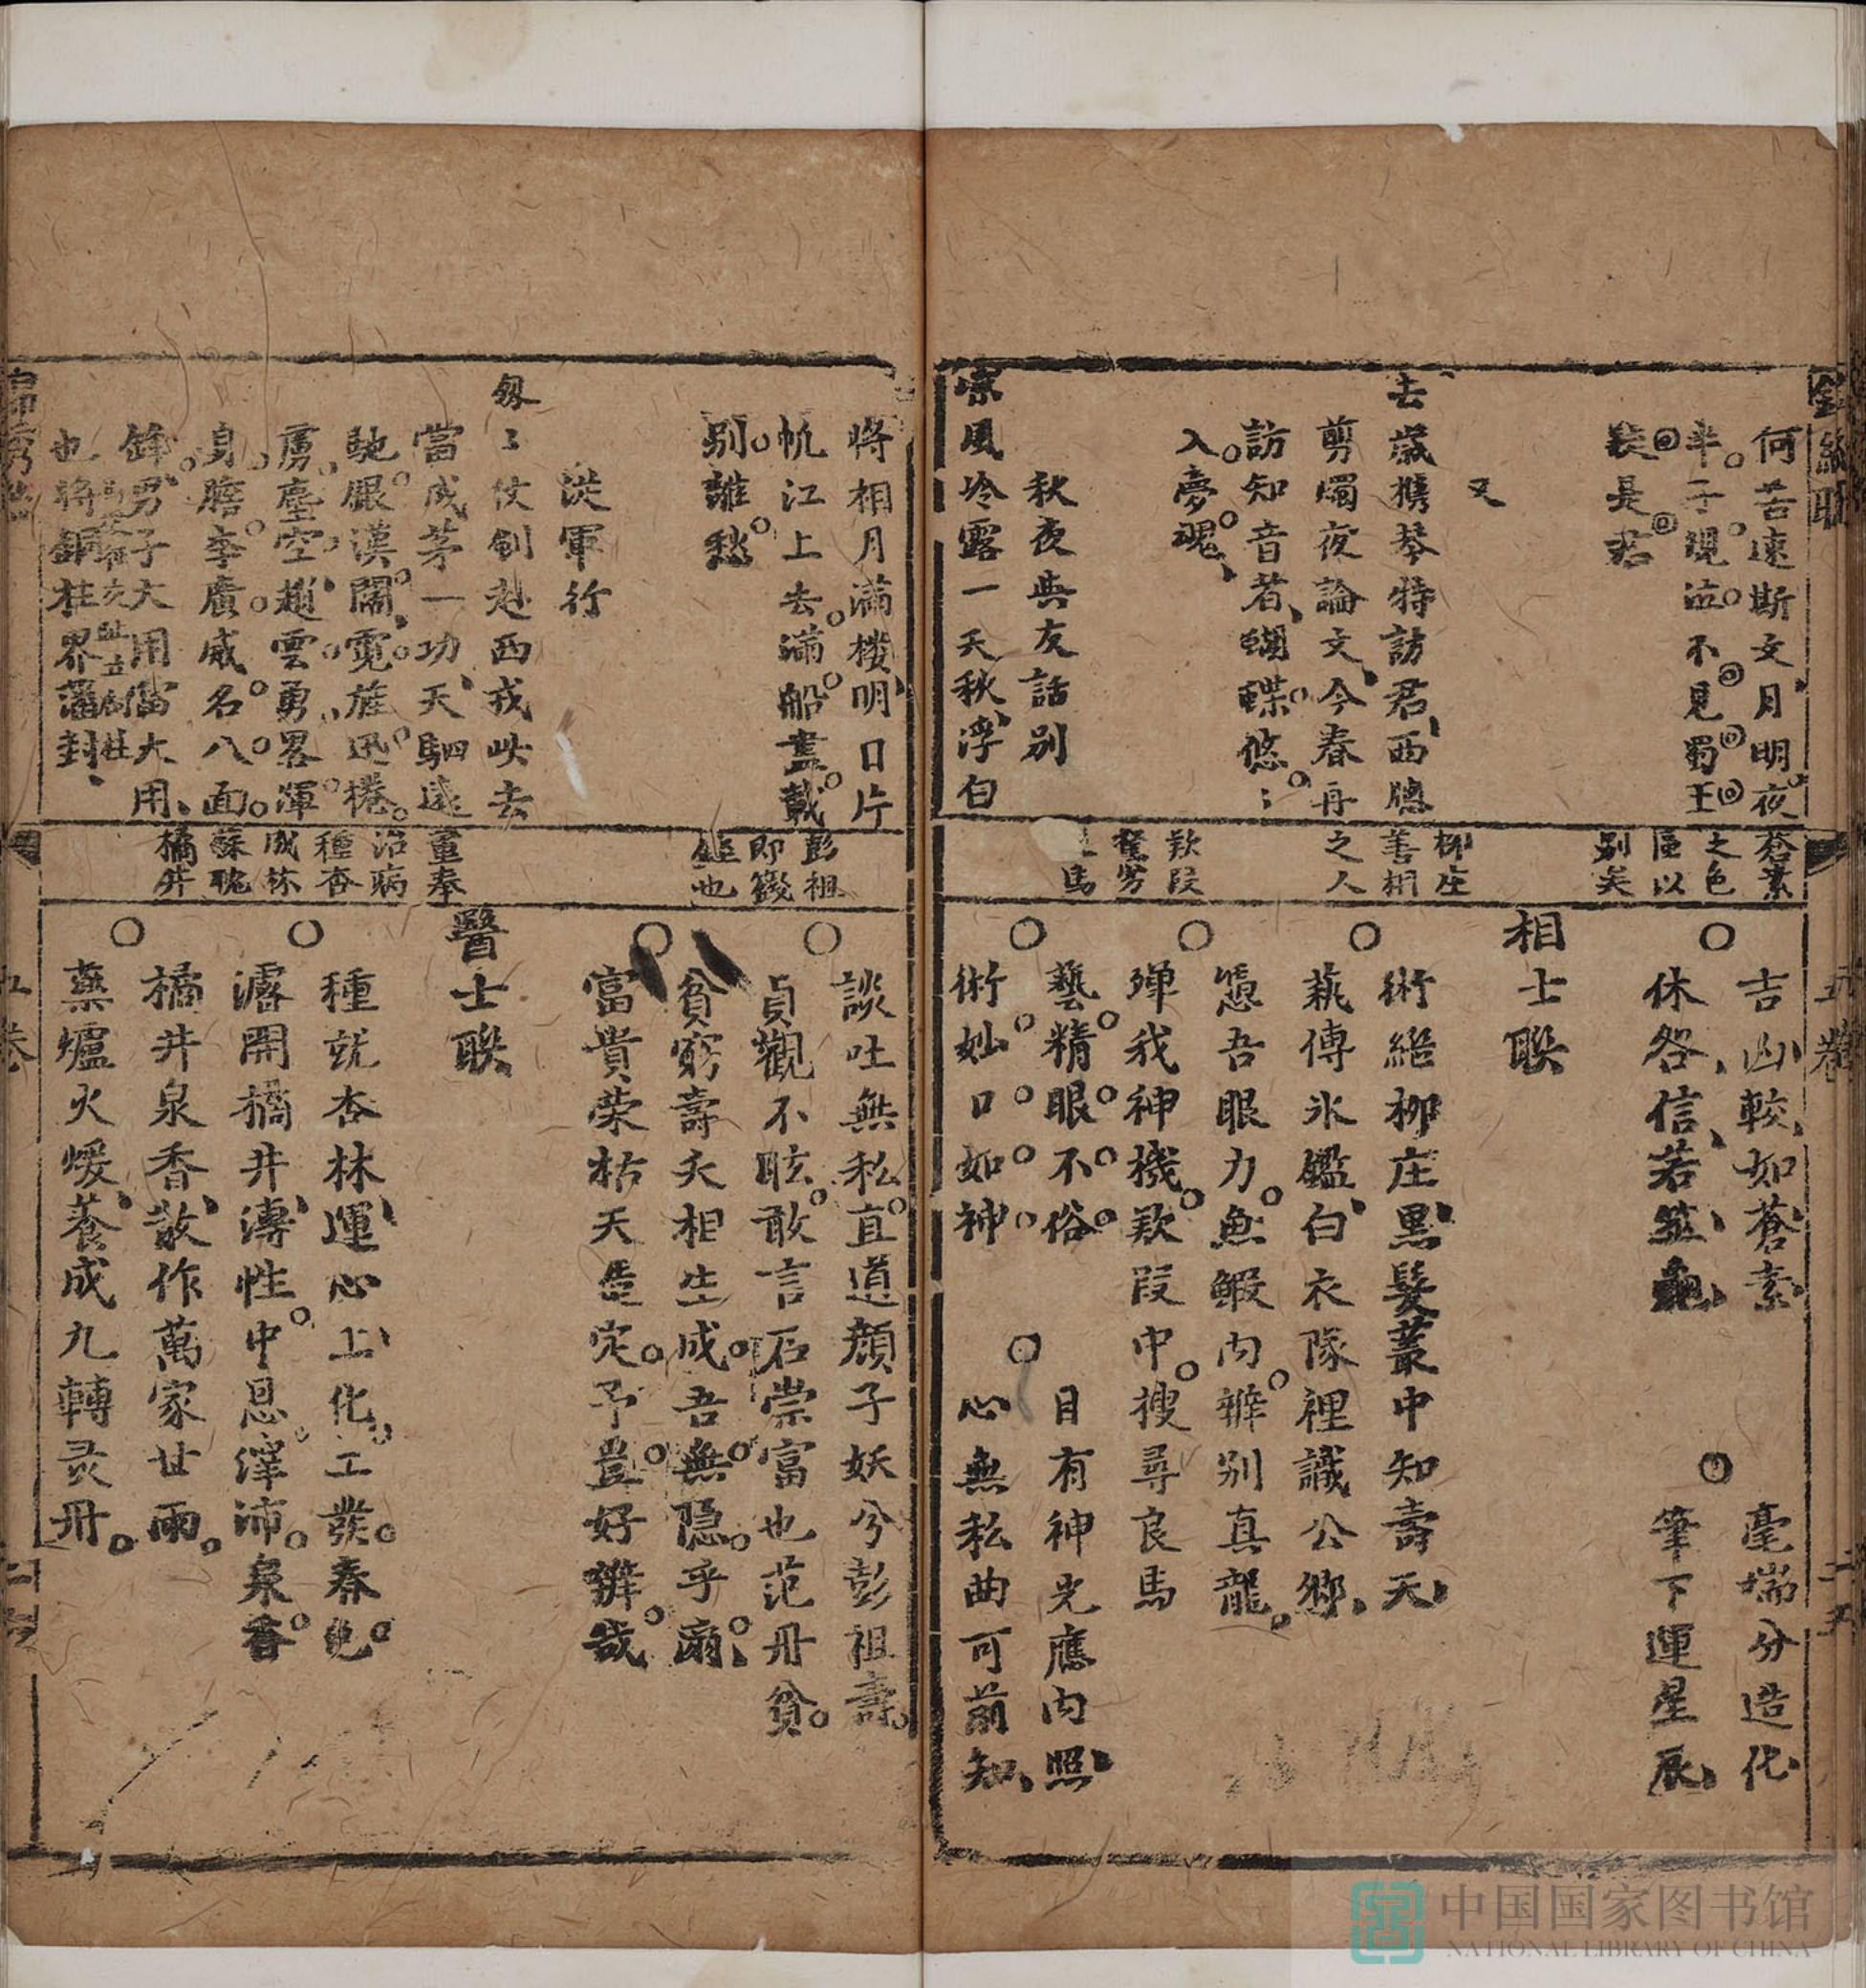 何苦速斯文月明夜
半子規泣不見蜀王
裝長君
又
去歲携琴特訪君西牕
剪燭夜論文今春再
訪知音者蝴蝶悠〻
入夢魂
秋夜與友話別
宗風冷露一天秋浮白
蒼素
之色
區以
别矣
柳庄
善相
之人
欵段
駑劣
馬
吉凶較如蒼素
休咎信若筮龜
毫端分造化
筆下運星辰
相士聯
術絕柳庄黑髮叢中知壽夭
蓺傳氷鑑白衣隊裡識公鄉
憑吾眼力魚鰕内辦别真龍
殫我神機欵段中搜尋良馬
藝精眼不俗
術妙口如神
目有神光應内照
心無私曲可前知
五卷
二五
將相月滿楼明日片
帆江上去滿船盡載
别離愁
從軍行
匆〻仗劍赴西戎此去
當成茅一功天駟遠
馳眼漢闊霓旌迅捲
虜塵空趙雲勇畧渾
身膽李廣威名八面
鋒男子大用當大用
也將銅柱界藩封
彭祖
即籛
鏗也
董奉
治病
種杏
成林
蘇耽
橘井
談吐無私直道顔子妖兮彭祖壽
貞觀不眩敢言石崇富也范丹貧
貧窮壽夭相生成吾無隐乎爾
富貴荣枯天㝎定予豈好辦哉
醫士聯
種就杏林運心上化工發春色
濬開橘井漙性中恩澤沛泉香
橘井泉香散作萬家甘雨
藥爐火煖養成九轉灵丹